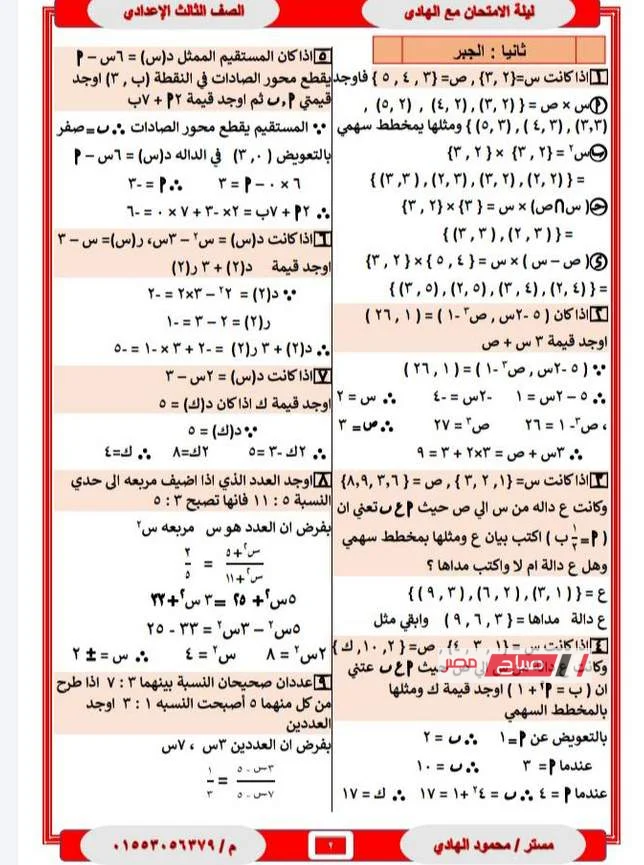 ليلة الامتحان مع الهادي
الصف الثالث الإعدادي
ثانيا : الجبر
١ اذا كانت س={٢ ,٣} , ص= {٣ , ٤ , ٥ } فاوجد
أ س × ص = { (٢ ,٣) , (٢ ,٤) , (٢ ,٥) ,
(٣,٣) , (٣ ,٤ ) , (٣ ,٥) } ومثلها بمخطط سهمي
ب س٢ = {٢ , ٣} × { ٢ , ٣}
= { (٢ ,٢) , (٢ ,٣) , (٣ ,٢) , (٣ ,٣) }
ج ( س∩ص) × س = { ٣} × {٢ , ٣}
= { (٣ ,٢ ) , (٣ ,٣ ) }
د ( ص – س ) × س = { ٤ , ٥ } × {٢ , ٣}
= { (٤ ,٢) , (٤ ,٣) , (٥ ,٢) , (٥ ,٣) }
٢ اذا كان ( ٥ -٢س , ص٣ -١ ) = ( ١ , ٢٦ )
اوجد قيمة ٣ س + ص
∵ ( ٥ -٢س , ص٣ -١ ) = ( ١ , ٢٦ )
∴ ٥ – ٢س = ١ -٢س = -٤ ∴ س = ٢
, ص٣ -١ = ٢٦ ص٣ = ٢٧ ∴ ص = ٣
∴ ٣س + ص = ٣×٢ + ٣ = ٩
٣ اذا كانت س= {١ , ٢ , ٣ } , ص = { ٣,٦ ,٨,٩}
وكانت ع داله من س الي ص حيث أ ع ب تعني ان
( أ = ١/٢ ب ) اكتب بيان ع ومثلها بمخطط سهمي
وهل ع دالة ام لا واكتب مداها ؟
ع = { (١ ,٣) , (٢ ,٦ ) , (٣ , ٩ ) }
ع دالة مداها = { ٣ , ٦ , ٩ } وابقي مثل
٤ اذا كانت س = {١ , ٣ , ٤} , ص= {٢ ,١٠ , ك }
وكانت ع دالة من س الي ص حيث أ ع ب عتني
ان ( ب = أ٢ + ١ ) اوجد قيمة ك ومثلها
بالمخطط السهمي
بالتعويض عن أ = ١ ∴ ب = ٢
عندما أ = ٣ ∴ ب = ١٠
عندما أ = ٤ ∴ ب = ٤٢ +١ = ١٧ ∴ ك = ١٧
٥ اذا كان المستقيم الممثل د(س) = ٦س – أ
يقطع محور الصادات في النقطة (ب , ٣) اوجد
قيمتي أ , ب ثم اوجد قيمة ٢أ + ٧ب
∵ المستقيم يقطع محور الصادات ∴ ب = صفر
بالتعويض (٠ ,٣) في الداله د(س) = ٦س – أ
٦ × ٠ – أ = ٣ ∴ أ = -٣
∴ ٢أ + ٧ب = ٢× -٣ + ٧ × ٠ = -٦
٦ اذا كانت د(س) = س٢ – ٣س، ر(س)= س – ٣
اوجد قيمة د(٢) + ٣ ر(٢)
∵ د(٢) = ٢٢ – ٣×٢ = -٢
ر(٢) = ٢ – ٣ = -١
∴ د(٢) + ٣ ر(٢) = -٢ + ٣ × -١ = -٥
٧ اذا كانت د(س) = ٢س – ٣
اوجد قيمة ك اذا كان د(ك) = ٥
∵ د(ك) = ٥
∴ ٢ك -٣ = ٥ ٢ك = ٨ ∴ ك=٤
٨ اوجد العدد الذي اذا اضيف مربعه الى حدي
النسبة ٥ : ١١ فانها تصبح ٣ : ٥
بفرض ان العدد هو س مربعه س٢
س٢+٥ / س٢+١١ = ٢ / ٥
٥س٢ + ٢٥ = ٣ س٢ + ٣٣
٥س٢ – ٣س٢ = ٣٣ - ٢٥
٢س٢ = ٨ س٢ = ٤ ∴ س = ± ٢
٩ عددان صحيحان النسبة بينهما ٣ : ٧ اذا طرح
من كل منهما ٥ أصبحت النسبه ١ : ٣ اوجد
العددين
بفرض ان العددين ٣س , ٧س
٣س - ٥ / ٧س - ٥ = ١ / ٣
صباح مصر
مستر / محمود الهادي
٢
م / ٠١٥٥٣٠٥٦٣٧٩